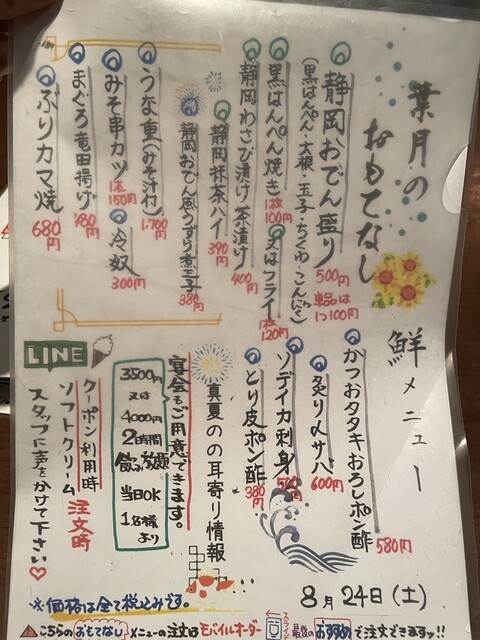 葉月の
おもてなし
静岡おでん盛り 500円
(黒はんぺん・大根・玉子・ちくわ・こんにゃく) 単品は1つ100円
黒はんぺん焼き 1枚100円 又はフライ 1枚120円
静岡わさび漬け茶漬け 400円
静岡抹茶ハイ 390円
静岡おでん風うずら煮玉子 380円
うな重(みそ汁付) 1,700円
みそ串カツ 1本150円
冷奴 300円
まぐろ竜田揚げ 480円
ぶりカマ焼 680円
鮮メニュー
かつおタタキおろしポン酢 580円
炙り〆サバ 600円
ソデイカ刺身 500円
とり皮ポン酢 380円
真夏のの耳寄り情報
宴会もご用意できます。
3500円
又は
4000円
2時間
飲み放題
当日OK
1名様
より
LINE
クーポン利用時
ソフトクリーム 注文時
スタッフに声をかけて下さい♡
8月24日(土)
※価格は全て税込みです。
こちらのおもてなしメニューの注文はモバイルオーダー
スライド
最後のおすすめで注文できますヨ!!